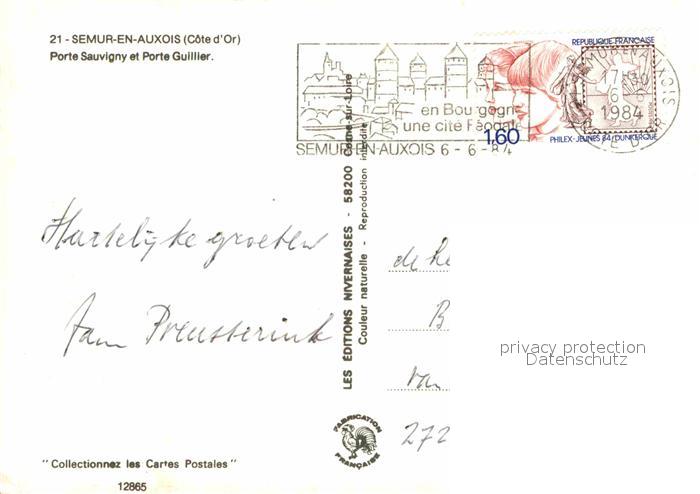 21 - SEMUR-EN-AUXOIS (Côte d'Or)
Porte Sauvigny et Porte Guillier.
REPUBLIQUE FRANÇAISE
en Bourgogne
une cité Féodale
1,60
PHILEX-JEUNES 84 DUNKERQUE
17 H 30
6 - 6
1984
SEMUR-EN-AUXOIS 6 - 6 - 84
Hartelijke groeten
fam
de he
B
van
272
LES ÉDITIONS NIVERNAISES - 58200 Cosne-sur-Loire
Couleur naturelle - Reproduction interdite
privacy protection
Datenschutz
FABRICATION
FRANÇAISE
"Collectionnez les Cartes Postales"
12865